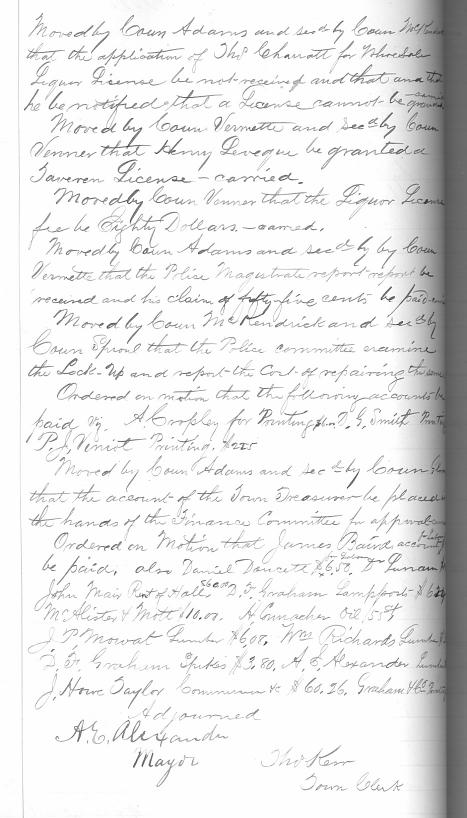 Moved by Coun Adams and secd by Coun McKendrick
that the application of Thos Charratt for Wholesale
Liquor License be not received and that and that
he be notified that a License cannot be granted carried
Moved by Coun Vernette and secd by Coun
Venner that Henry Leveque be granted a
Taveren License – carried.
Moved by Coun Venner that the Liquor License
fee be Eighty Dollars – carried.
Moved by Coun Adams and secd by by Coun
Vernette that the Police Magistrate report report be
received and his claim of fifty five cents be paid
Moved by Coun McKendrick and secd by
Coun Sproul that the Police committee examine
the Lock-Up and report the Cost of repairing the same
Ordered on motion that the following accounts be
paid viz. A Cropley for Printing T. G. Smith Printing
P. J. Veniot Printing, $225
Moved by Coun Adams and secd by Coun
that the account of the Town Treasurer be placed
the hands of the Finance Committee for approval
Ordered on Motion that James Baird account
be paid, also Daniel Doucett $6.50, D
John Mair Rent of Hall, D, F, Graham Lamppost $
McAlister & Mott $10.00. H. Oil, 55¢
J. P. Mowat Lumber $6.00, Wm Richards Lumber
D, F, Graham Spikes $3.80, A. E. Alexander Lumber
J. Howe Taylor $60.26, Graham & Co
Adjourned
A. E. Alexander
Mayor Thos Kerr
Town Clerk